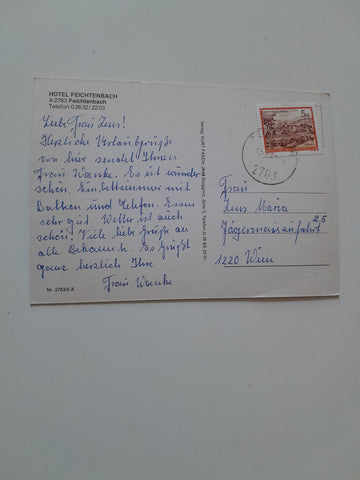 HOTEL FEICHTENBACH
A-2763 Feichtenbach
Telefon 0 26 32 / 22 03
Liebe Frau Zens!
Herzliche Urlaubsgrüße
von hier sendet Ihnen
Frau Wanke. Es ist wunder
schön. Einbettzimmer mit
Balkon und Telefon. Essen
sehr gut. Wetter ist auch
schön. Viele liebe Grüße an
alle Bekannte. Es Grüßt
ganz herzlich Ihre
Frau Wanke
Nr. 2763/5 A
Verlag KURT FASCH, 2640 Gloggnitz, Zeile 3, Telefon 0 26 62 / 22 01
5 S
2763
Frau
Zens Maria
Jägermaiseinfahrt 25
1220 Wien